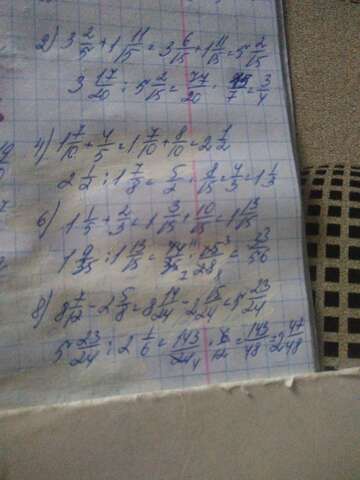 2) 3 2/5 + 1 11/15 = 3 6/15 + 1 11/15 = 5 2/15
3 17/20 : 5 2/15 = 77/20 · 15/7 = 3/4
4) 1 7/10 + 4/5 = 1 7/10 + 8/10 = 2 1/2
2 1/2 : 1 7/8 = 5/2 · 8/15 = 4/3 = 1 1/3
6) 1 1/5 + 2/3 = 1 3/15 + 10/15 = 1 13/15
1 9/35 : 1 13/15 = 44/35 · 15/28 =
8) 8 7/12 - 2 5/8 = 8 14/24 - 2 15/24 = 5 23/24
5 23/24 : 2 1/6 = 143/24 · 6/12 = 143/48 = 2 47/48